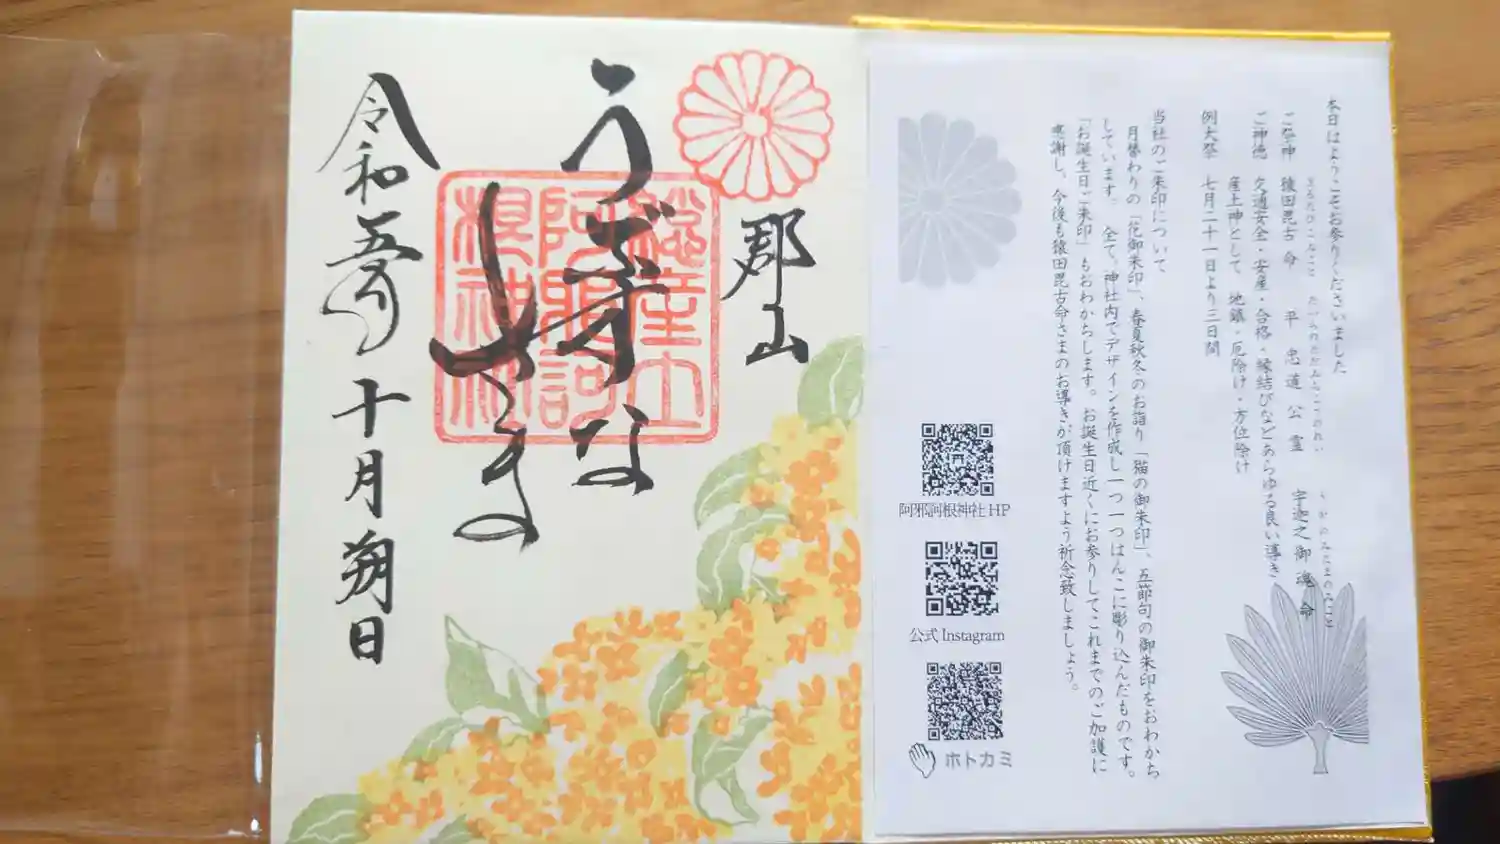 郡山
うぶすな
さま
総産土
阿邪訶
根神社
令和五年十月朔日
本日はようこそお参りくださいました
さるたひこのみこと たいらのただみちこうのれい うかのみたまのみこと
ご祭神 猿田毘古 命 平 忠 道 公 霊 宇迦之御 魂 命
ご神徳 交通安全・安産・合格・縁結びなどあらゆる良い導き
産土神として 地鎮・厄除け・方位除け
例大祭 七月二十一日より三日間
当社のご朱印について
月替わりの「花御朱印」、春夏秋冬のお詣り「猫の御朱印」、五節句の御朱印をおわかち
しています。 全て、神社内でデザインを作成し一つ一つはんこに彫り込んだものです。
「お誕生日ご朱印」もおわかちします。お誕生日近くにお参りしてこれまでのご加護に
感謝し、今後も猿田毘古命さまのお導きが頂けますよう祈念致しましょう。
阿邪訶根神社 HP
公式 Instagram
ホトカミ